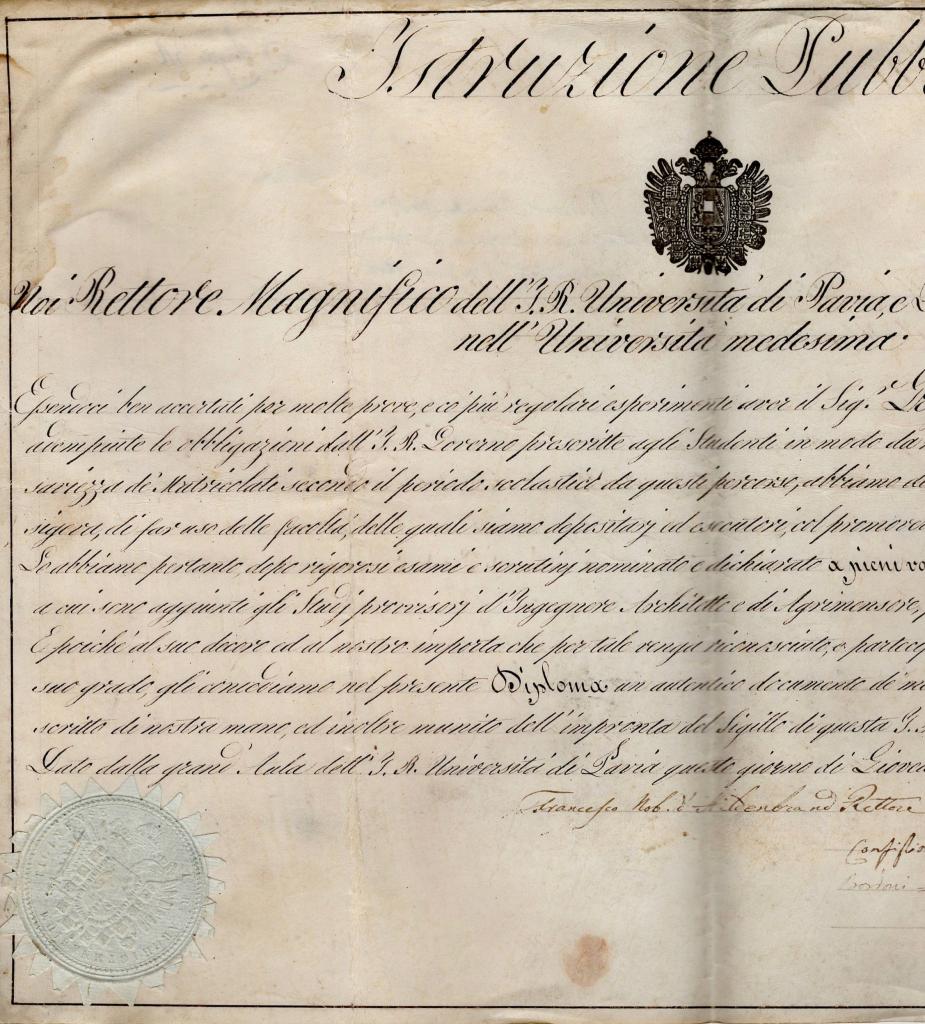 Istruzione Pubb
Noi Rettore Magnifico dell' I. R. Università di Pavia, e
nell' Università medesima.
Essendoci ben accertati per molte prove, e co' più regolari esperimenti aver il Sig.r
adempiute le obbligazioni dall' I. R. Governo prescritte agli Studenti in modo da
saviezza de' Matricolati secondo il periodo scolastico da questi percorso, abbiamo
sigera, di far uso delle facoltà, delle quali siamo depositarj ed esecutori, col
Lo abbiamo pertanto, dopo rigorosi esami e scrutinj nominato e dichiarato a pieni vo
a cui sono aggiunti gli Studj provvisorj d' Ingegnere Architetto e di Agrimensore,
E poichè al suo decoro ed al nostro importa che per tale venga riconosciuto, e partecip
suo grado, gli concediamo nel presente Diploma un autentico documento di
scritto di nostra mano, ed inoltre munito dell' impronta del Sigillo di questa I.
Dato dalla grand' Aula dell' I. R. Università di Pavia questo giorno di Gioved
Francesco Nob. Rettore
Bordoni